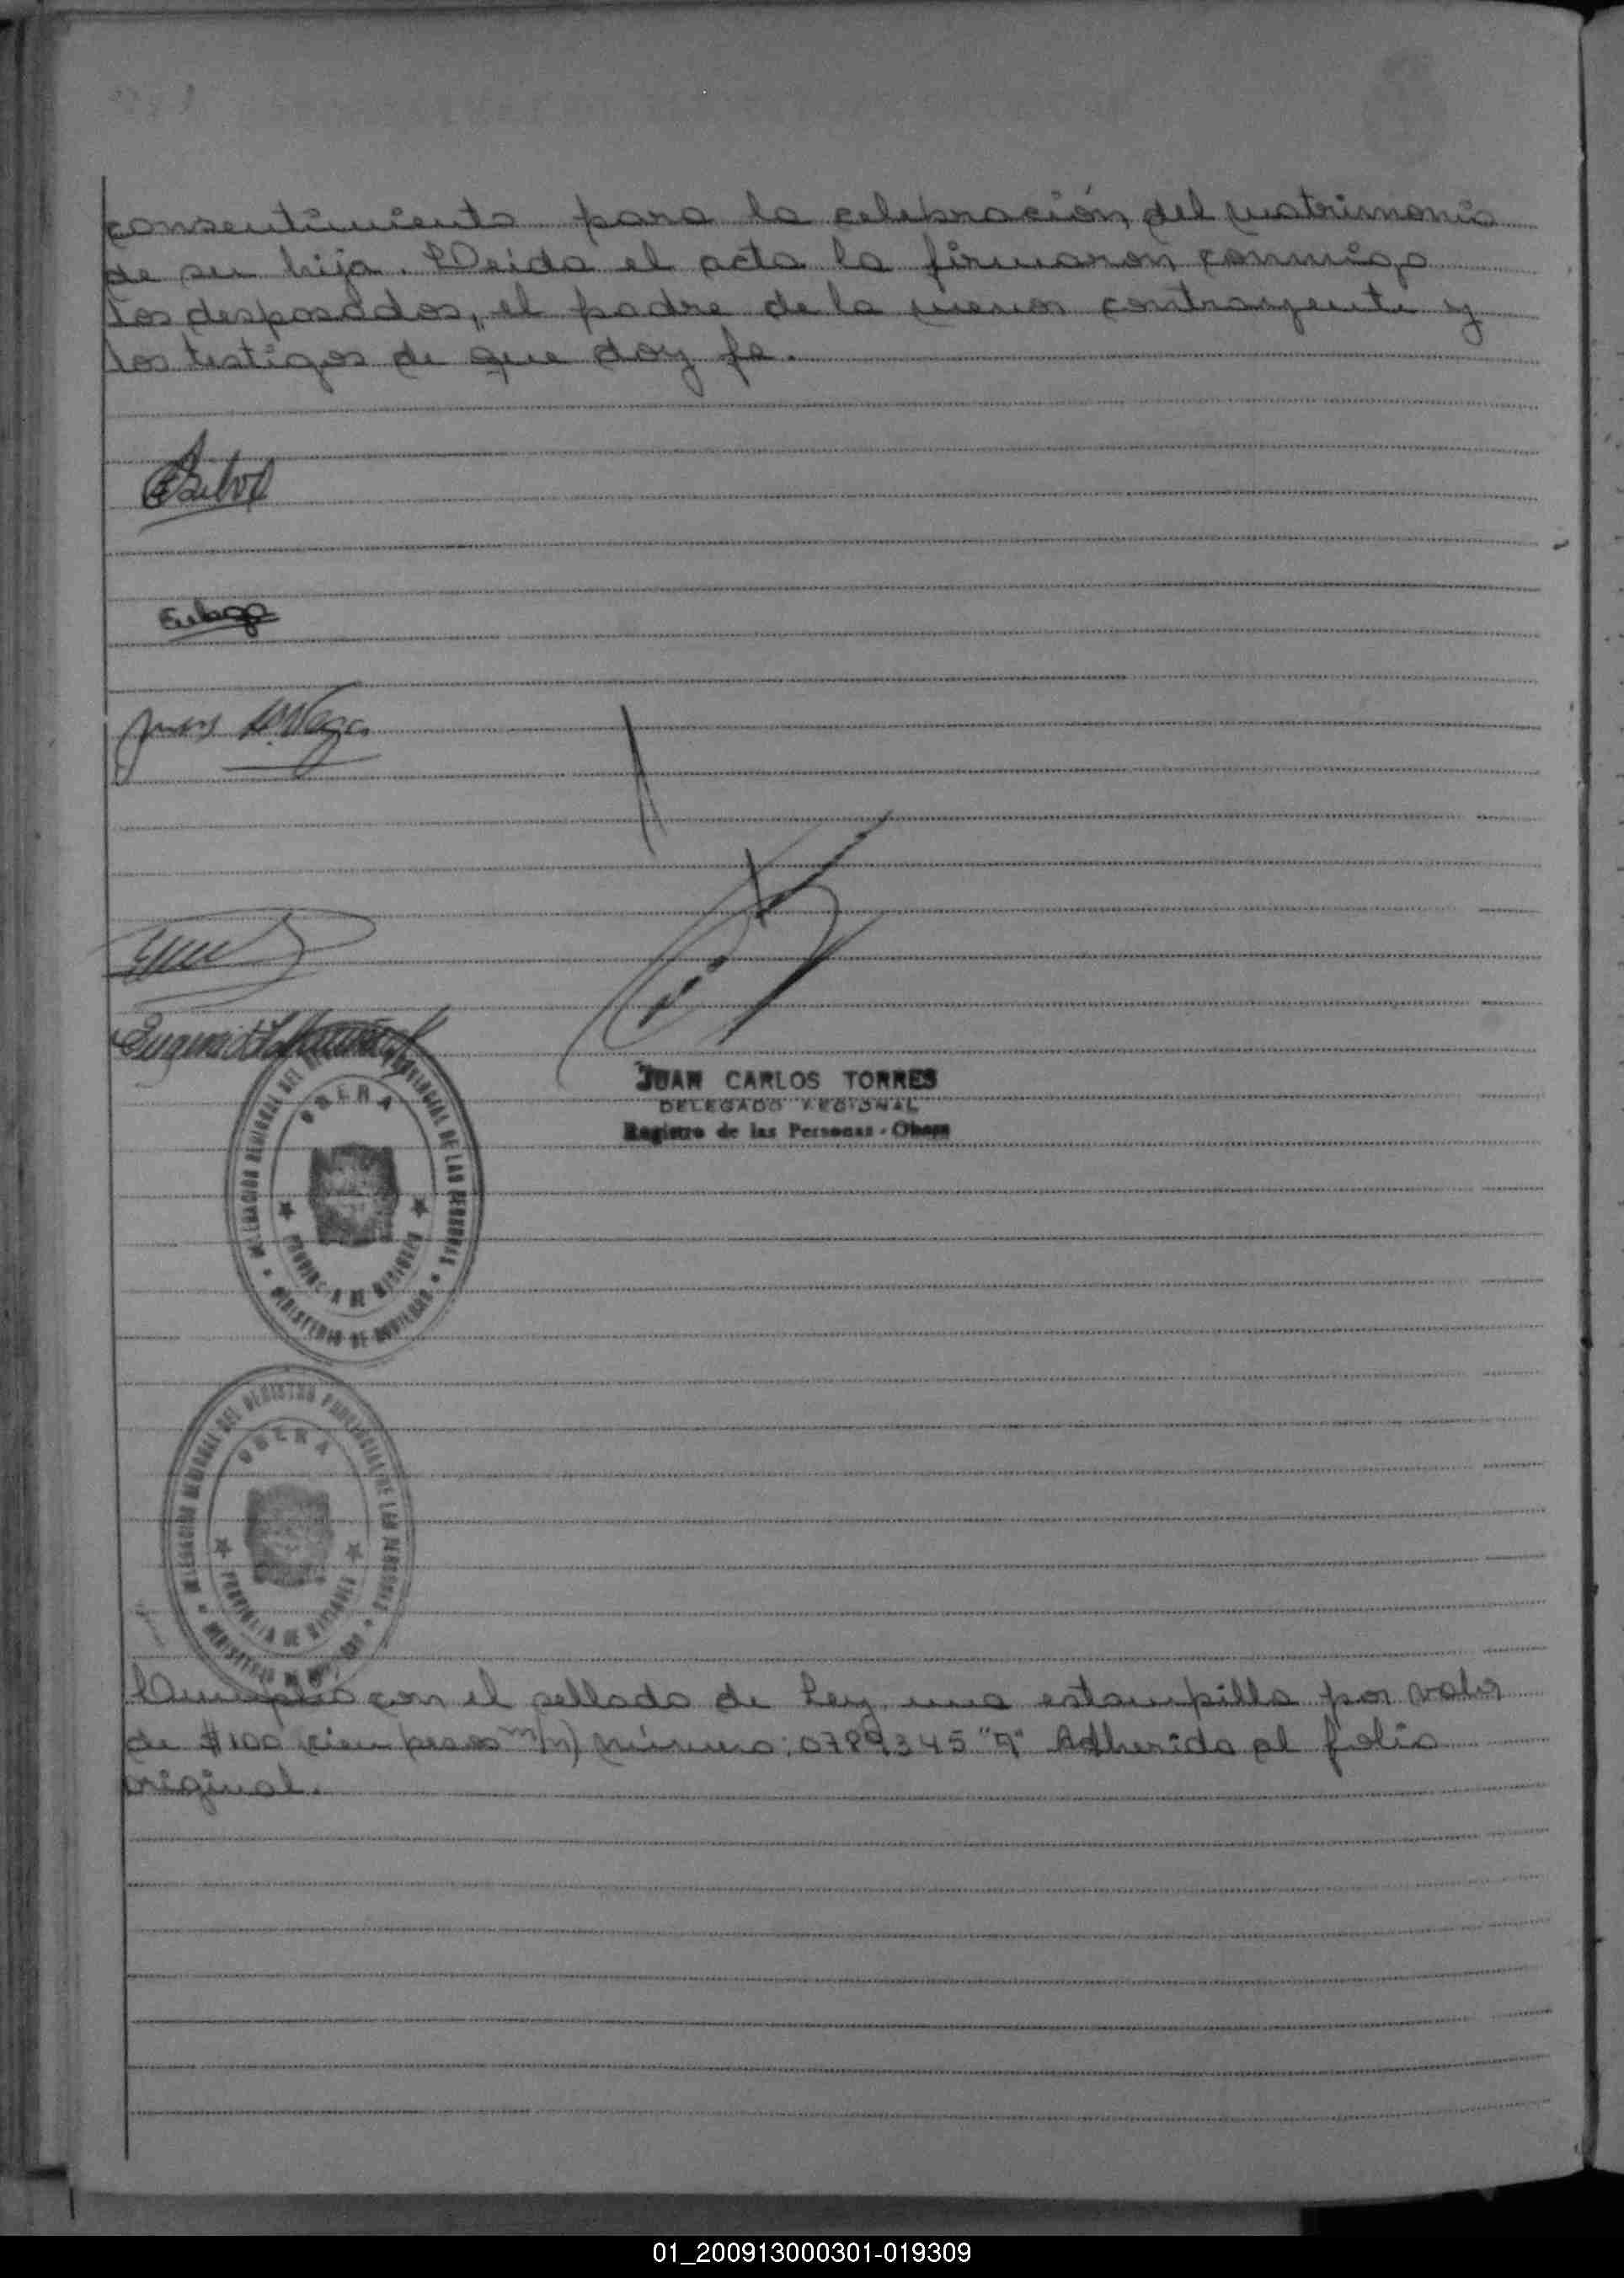 consentimiento para la celebración del matrimonio
de su hija. Leida el acta la firmaron conmigo
los desposados, el padre de la menor contrayente y
los testigos de que doy fe.
JUAN CARLOS TORRES
DELEGADO REGIONAL
Registro de las Personas - Obera
DELEGACION REGIONAL DEL REGISTRO PROVINCIAL DE LAS PERSONAS
OBERA
PROVINCIA DE MISIONES
MINISTERIO DE GOBIERNO
DELEGACION REGIONAL DEL REGISTRO PROVINCIAL DE LAS PERSONAS
OBERA
PROVINCIA DE MISIONES
MINISTERIO DE GOBIERNO
Cumplio con el sellado de Ley una estampilla por valor
de $100 cien pesos m/n) número: 0789345 "A" Adherida al folio
original.
01_200913000301-019309